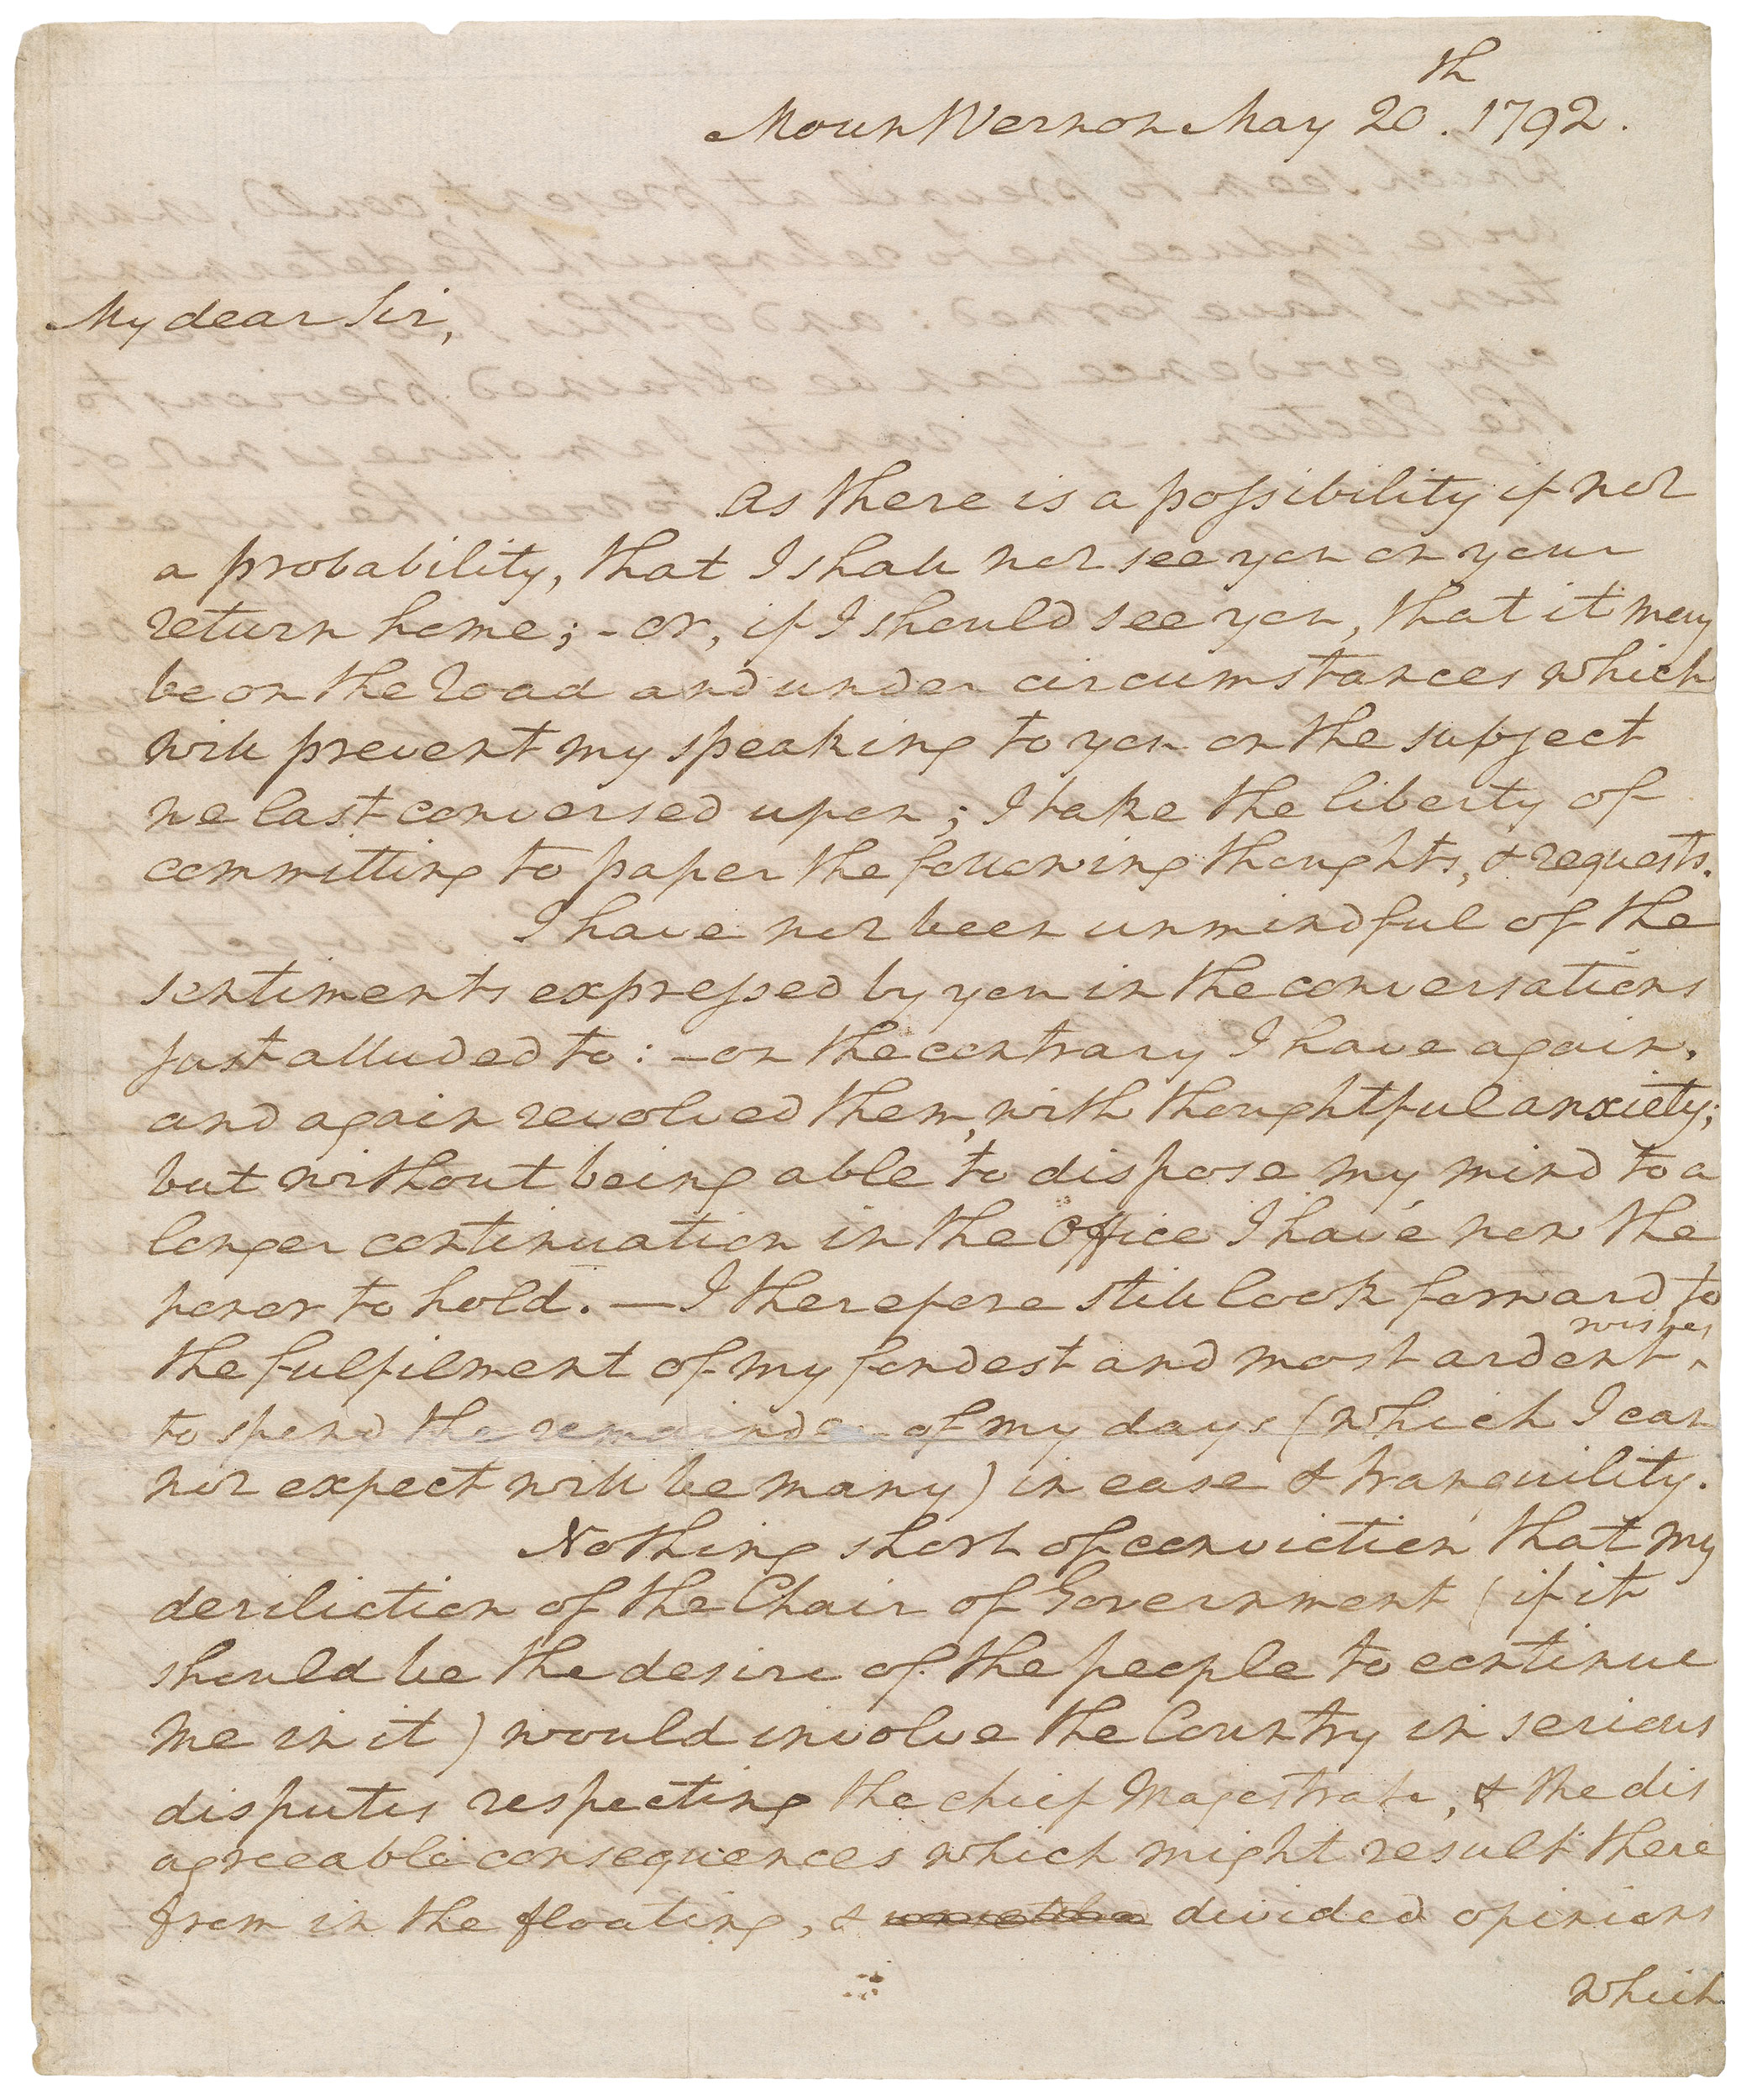 Mount Vernon May 20th. 1792.
My dear Sir,
As there is a possibility if not
a probability, that I shall not see you on your
return home; - or, if I should see you, that it may
be on the road and under circumstances which
will prevent my speaking to you on the subject
we last conversed upon; I take the liberty of
committing to paper the following thoughts, & requests.
I have not been unmindful of the
sentiments expressed by you in the conversations
just alluded to: - on the contrary I have again,
and again revolved them, with thoughtful anxiety;
but without being able to dispose my mind to a
longer continuation in the Office I have now the
honor to hold. — I therefore still look forward to
wishes
the fulfilment of my fondest and most ardent ^
to spend the remainder of my days (which I can
not expect will be many) in ease & tranquility.
Nothing short of conviction that my
deriliction of the Chair of Government (if it
should be the desire of the people to continue
me in it) would involve the Country in serious
disputes respecting the chief Magestrate, & the dis
agreeable consequences which might result there
from in the floating, & divided opinions
which